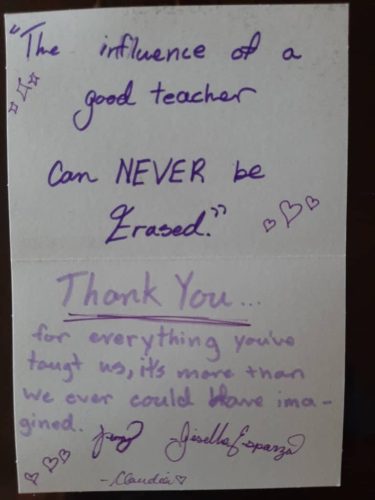 "The influence of a
good teacher
can NEVER be
Erased."
Thank You...
for everything you've
taugt us, it's more than
we ever could have ima-
gined.
Jisella Esparza
-Claudia